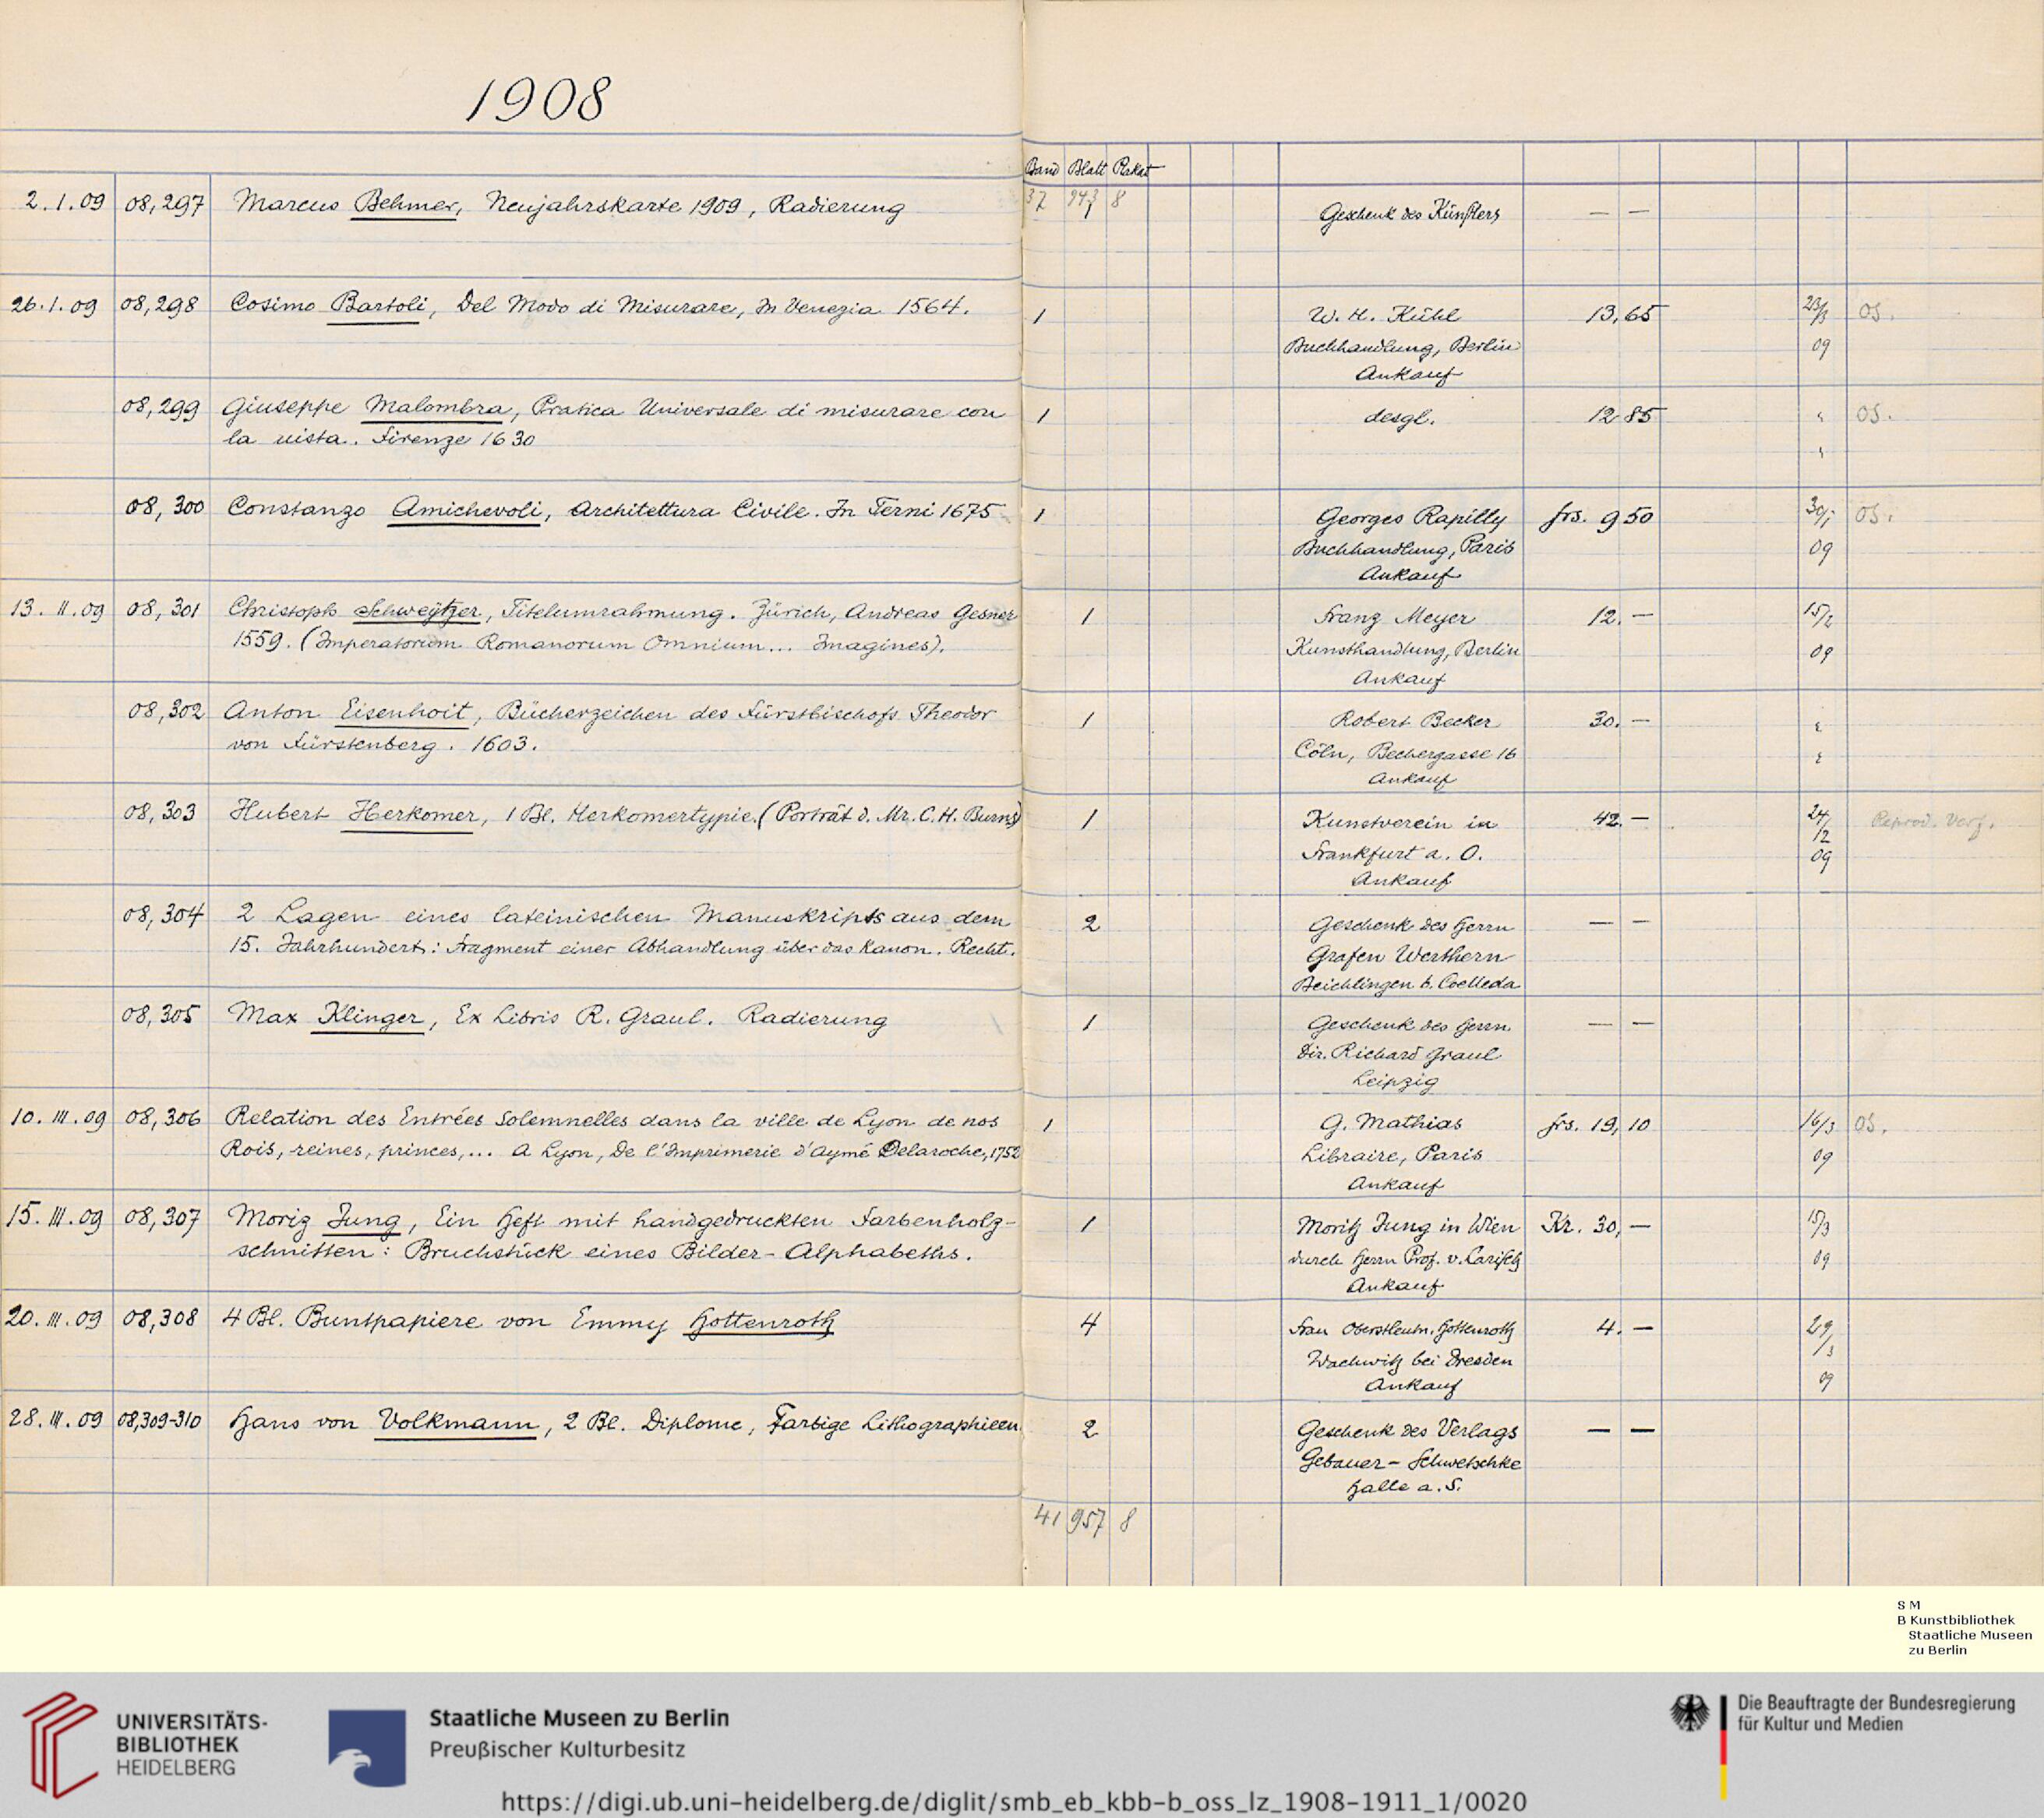 1908
Band Blatt Plakat
2.1.09 08,297 Marcus Behmer, Neujahrskarte 1909, Radierung 37 943 8 Geschenk des Künstlers — —
26.1.09 08,298 Cosimo Bartoli, Del Modo di Misurare, In Venezia 1564. 1 W. H. Kühl 13,65 23/3 OS.
Buchhandlung, Berlin 09
Ankauf
08,299 Giuseppe Malombra, Pratica Universale di misurare con 1 desgl. 12 85 " OS.
la vista. Firenze 1630 "
08,300 Constanzo Amichevoli, Architettura Civile. In Terni 1675 1 Georges Rapilly frs. 9 50 30/1 OS.
Buchhandlung, Paris 09
Ankauf
13.II.09 08,301 Christoph Schweytzer, Titelumrahmung. Zürich, Andreas Gesner 1 Franz Meyer 12.— 15/2
1559. (Imperatorum Romanorum Omnium... Imagines). Kunsthandlung, Berlin 09
Ankauf
08,302 Anton Eisenhoit, Bücherzeichen des Fürstbischofs Theodor 1 Robert Becker 30.— "
von Fürstenberg. 1603. Cöln, Bechergasse 16 "
Ankauf
08,303 Hubert Herkomer, 1 Bl. Herkomertypie. (Porträt d. Mr. C. H. Burns) 1 Kunstverein in 42.— 24/2 Reprod. Verf.
Frankfurt a. O. 09
Ankauf
08,304 2 Lagen eines lateinischen Manuskripts aus dem 2 Geschenk des Herrn — —
15. Jahrhundert: Fragment einer Abhandlung über das Kanon. Recht. Grafen Werthern
Beichlingen b. Coelleda
08,305 Max Klinger, Ex Libris R. Graul. Radierung 1 Geschenk des Herrn — —
Dir. Richard Graul
Leipzig
10.III.09 08,306 Relation des Entrées Solemnelles dans la ville de Lyon de nos 1 G. Mathias frs. 19,10 16/3 OS.
Rois, reines, princes,... A Lyon, De l'Imprimerie d'Aymé Delaroche, 1752 Libraire, Paris 09
Ankauf
15.III.09 08,307 Moriz Jung, Ein Heft mit handgedruckten Farbenholz- 1 Moritz Jung in Wien Kr. 30,— 15/3
schnitten: Bruchstück eines Bilder-Alphabeths. durch Herrn Prof. v. Larisch 09
Ankauf
20.III.09 08,308 4 Bl. Buntpapiere von Emmy Hottenroth 4 Frau Oberstleutn. Hottenroth 4.— 29/3
Wachwitz bei Dresden 09
Ankauf
28.III.09 08,309-310 Hans von Volkmann, 2 Bl. Diplome, Farbige Lithographieen 2 Geschenk des Verlags — —
Gebauer-Schwetschke
Halle a. S.
41 957 8
S M
B Kunstbibliothek
Staatliche Museen
zu Berlin
UNIVERSITÄTS-
BIBLIOTHEK
HEIDELBERG
Staatliche Museen zu Berlin
Preußischer Kulturbesitz
Die Beauftragte der Bundesregierung
für Kultur und Medien
https://digi.ub.uni-heidelberg.de/diglit/smb_eb_kbb-b_oss_lz_1908-1911_1/0020